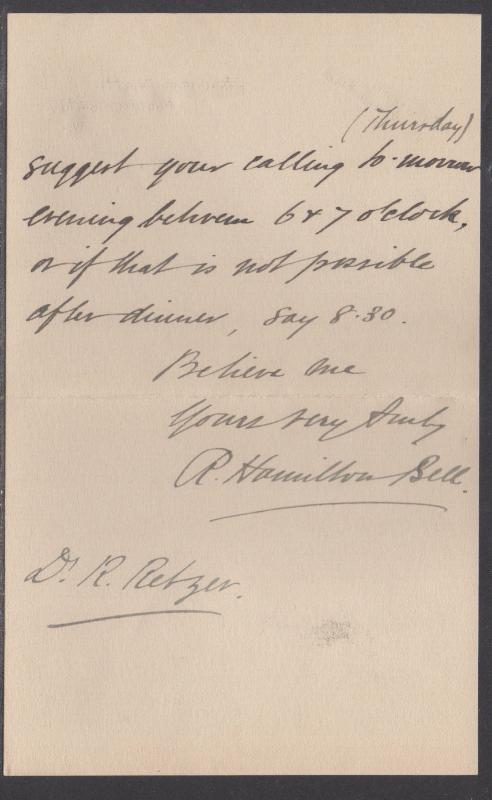 (Thursday)
suggest your calling to-morrow
evening between 6 & 7 o'clock,
or if that is not possible
after dinner, say 8.30.
Believe me
Yours very truly
R. Hamilton Bell.
Dr. R. Retzer.